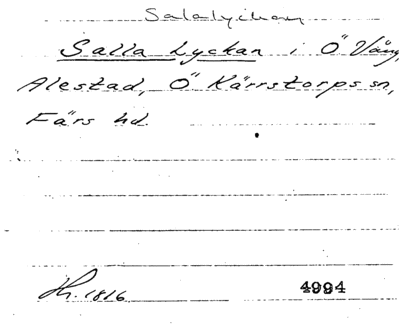 Salalyckan
Salla Lyckan i Ö Väng,
Alestad, Ö Kärrstorps sn,
Färs hd
Th. 1816 4994